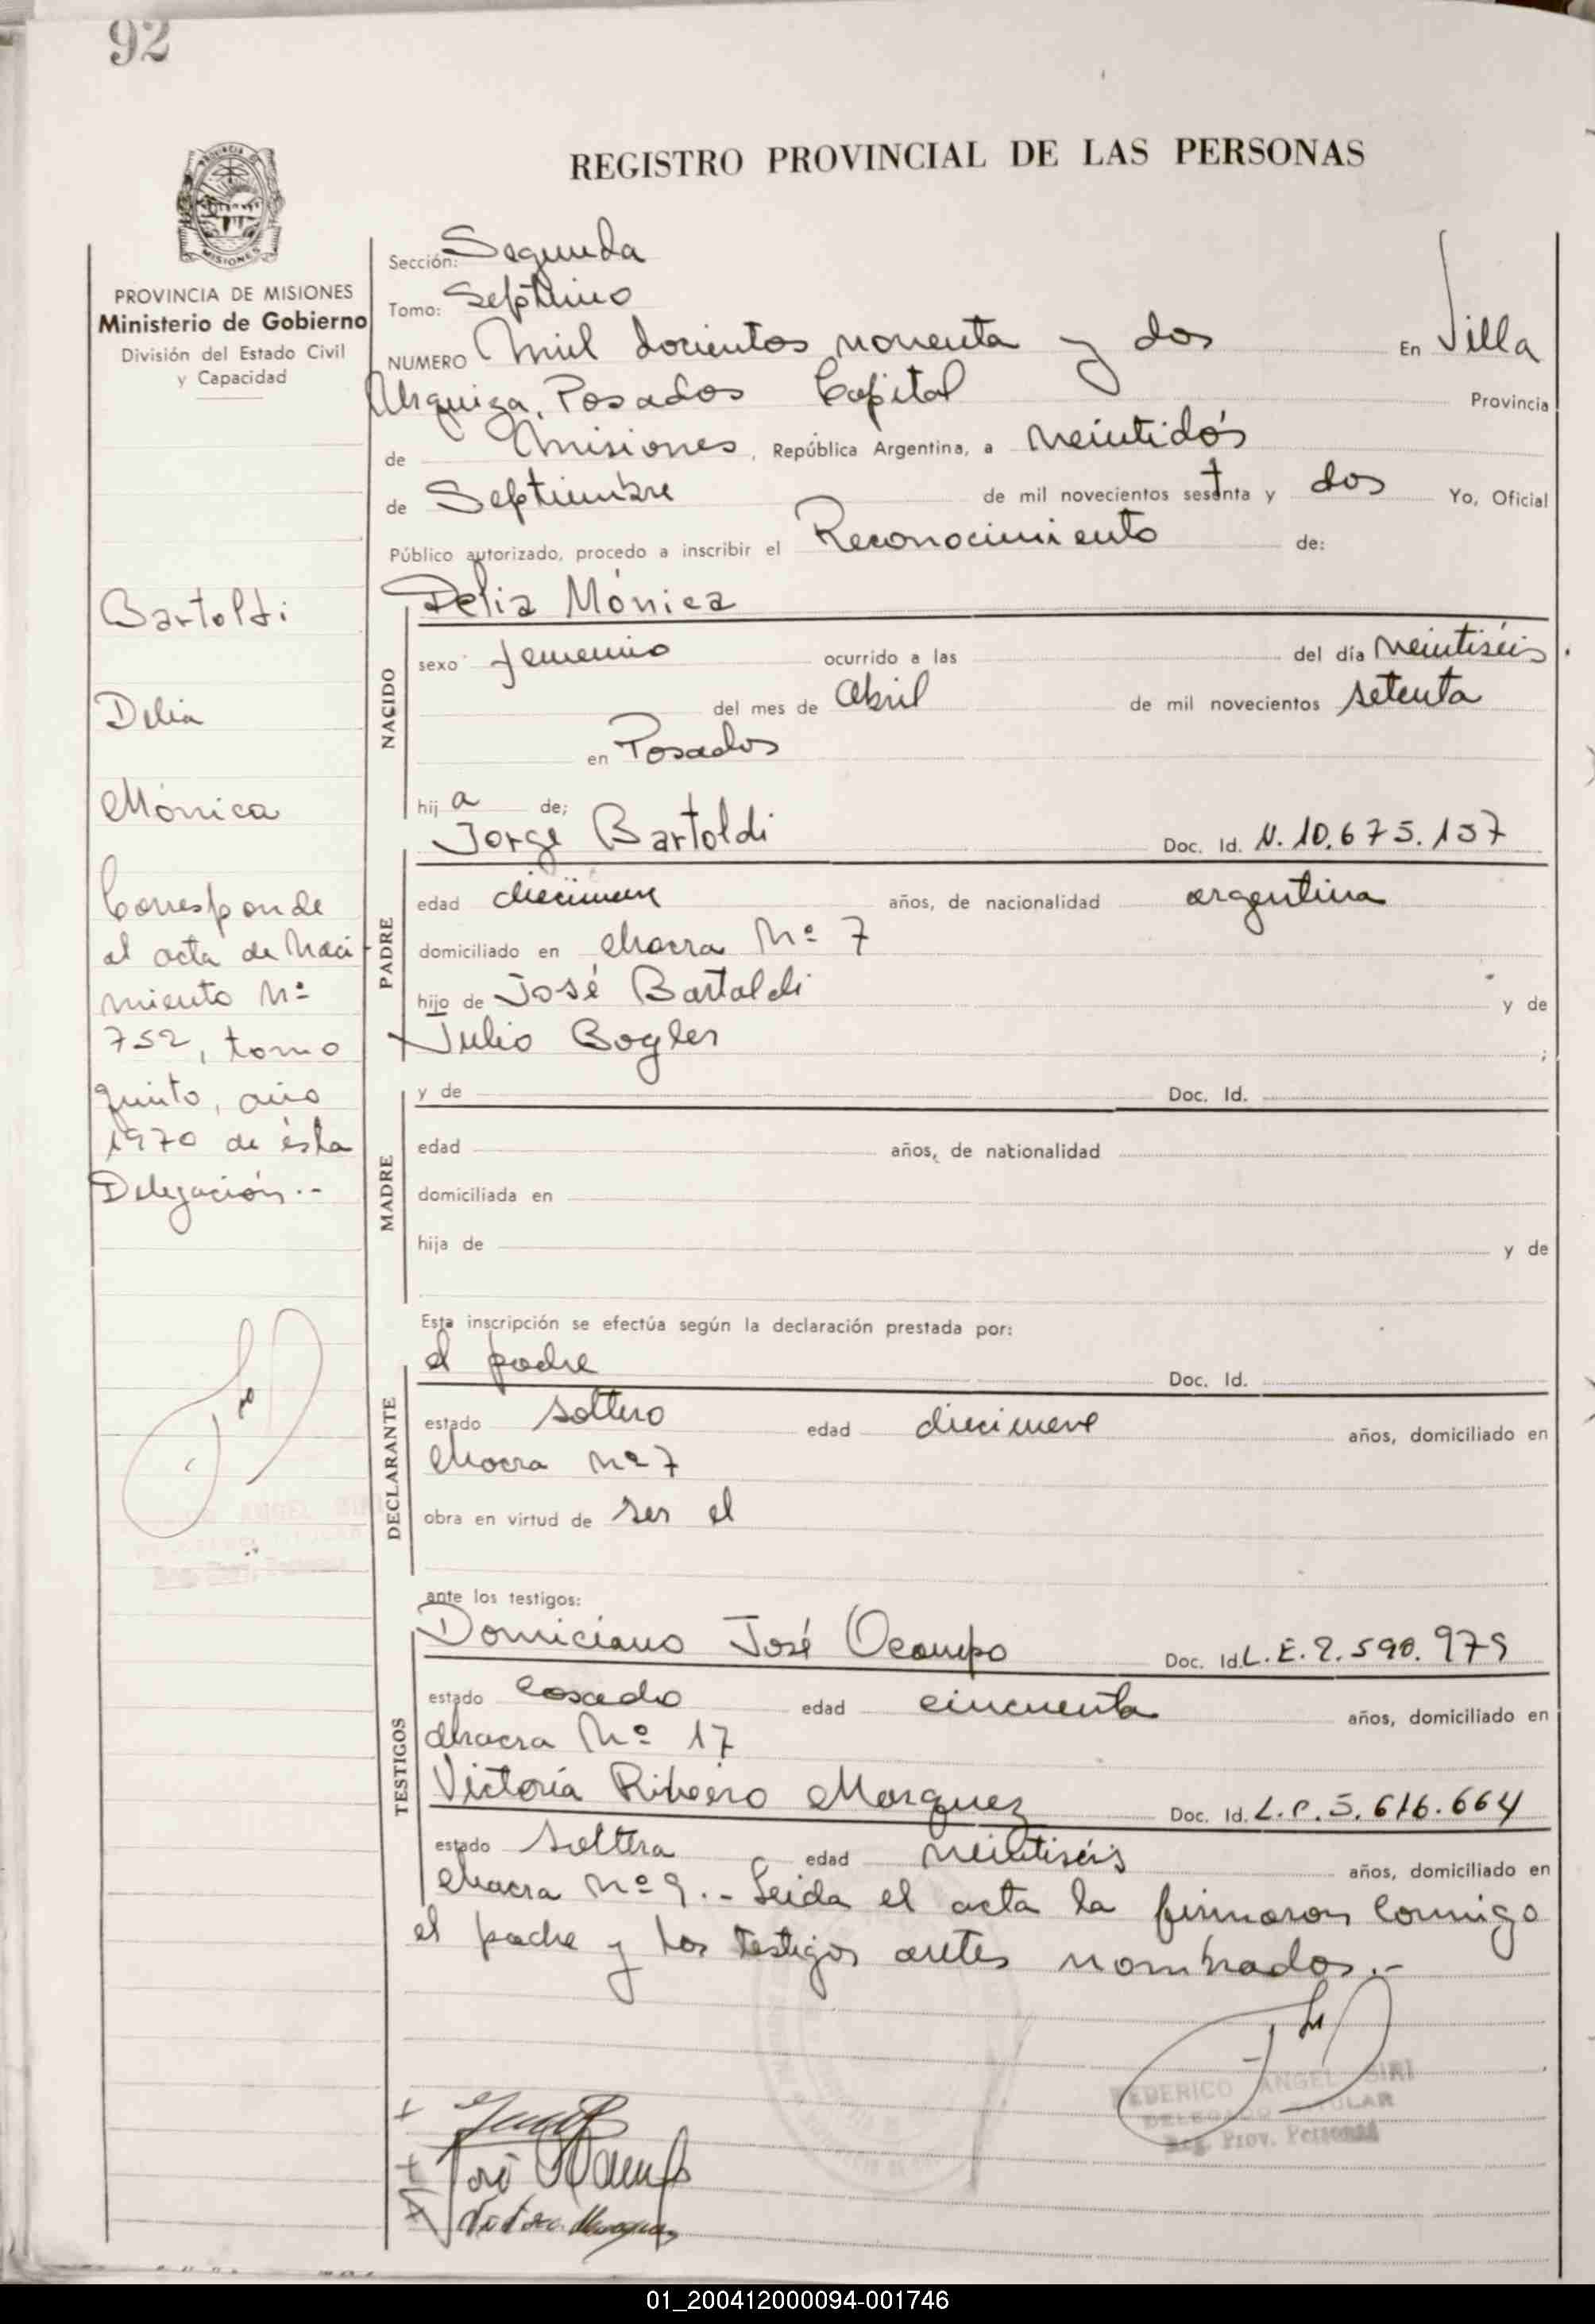 92
REGISTRO PROVINCIAL DE LAS PERSONAS
PROVINCIA DE MISIONES
Ministerio de Gobierno
División del Estado Civil
y Capacidad
Sección: Segunda
Tomo: Septimo
NUMERO Mil doscientos noventa y dos En Villa
Urquiza, Posadas Capital Provincia
de Misiones, República Argentina, a veintidós
de Septiembre de mil novecientos setenta y dos Yo, Oficial
Público autorizado, procedo a inscribir el Reconocimiento de:
Bartoldi
Delia
Mónica
Corresponde
al acta de Naci
miento Nº
752, tomo
quinto, año
1970 de ésta
Delegación.-
NACIDO
Delia Mónica
sexo femenino ocurrido a las del día veintiséis.
del mes de Abril de mil novecientos setenta
en Posadas
hija de;
PADRE
Jorge Bartoldi Doc. Id. N. 10.675.157
edad diecinueve años, de nacionalidad argentina
domiciliado en chacra Nº 7
hijo de José Bartoldi y de
Julio Bogler ;
MADRE
y de Doc. Id.
edad años, de nationalidad
domiciliada en
hija de y de
Esta inscripción se efectúa según la declaración prestada por:
DECLARANTE
el padre Doc. Id.
estado soltero edad diecinueve años, domiciliado en
chacra Nº 7
obra en virtud de ser el
ante los testigos:
TESTIGOS
Domiciano José Ocampo Doc. Id. L.E. 2.590.979
estado casado edad cincuenta años, domiciliado en
chacra Nº 17
Victoria Ribeiro Marquez Doc. Id. L.C. 5.616.664
estado soltera edad veintiséis años, domiciliado en
chacra Nº 9.- Leida el acta la firmaron conmigo
el padre y los testigos antes nombrados.-
FEDERICO ANGEL SIRI
DELEGADO TITULAR
Reg. Prov. Personas
José Ocampo
Victoria Marquez
01_200412000094-001746